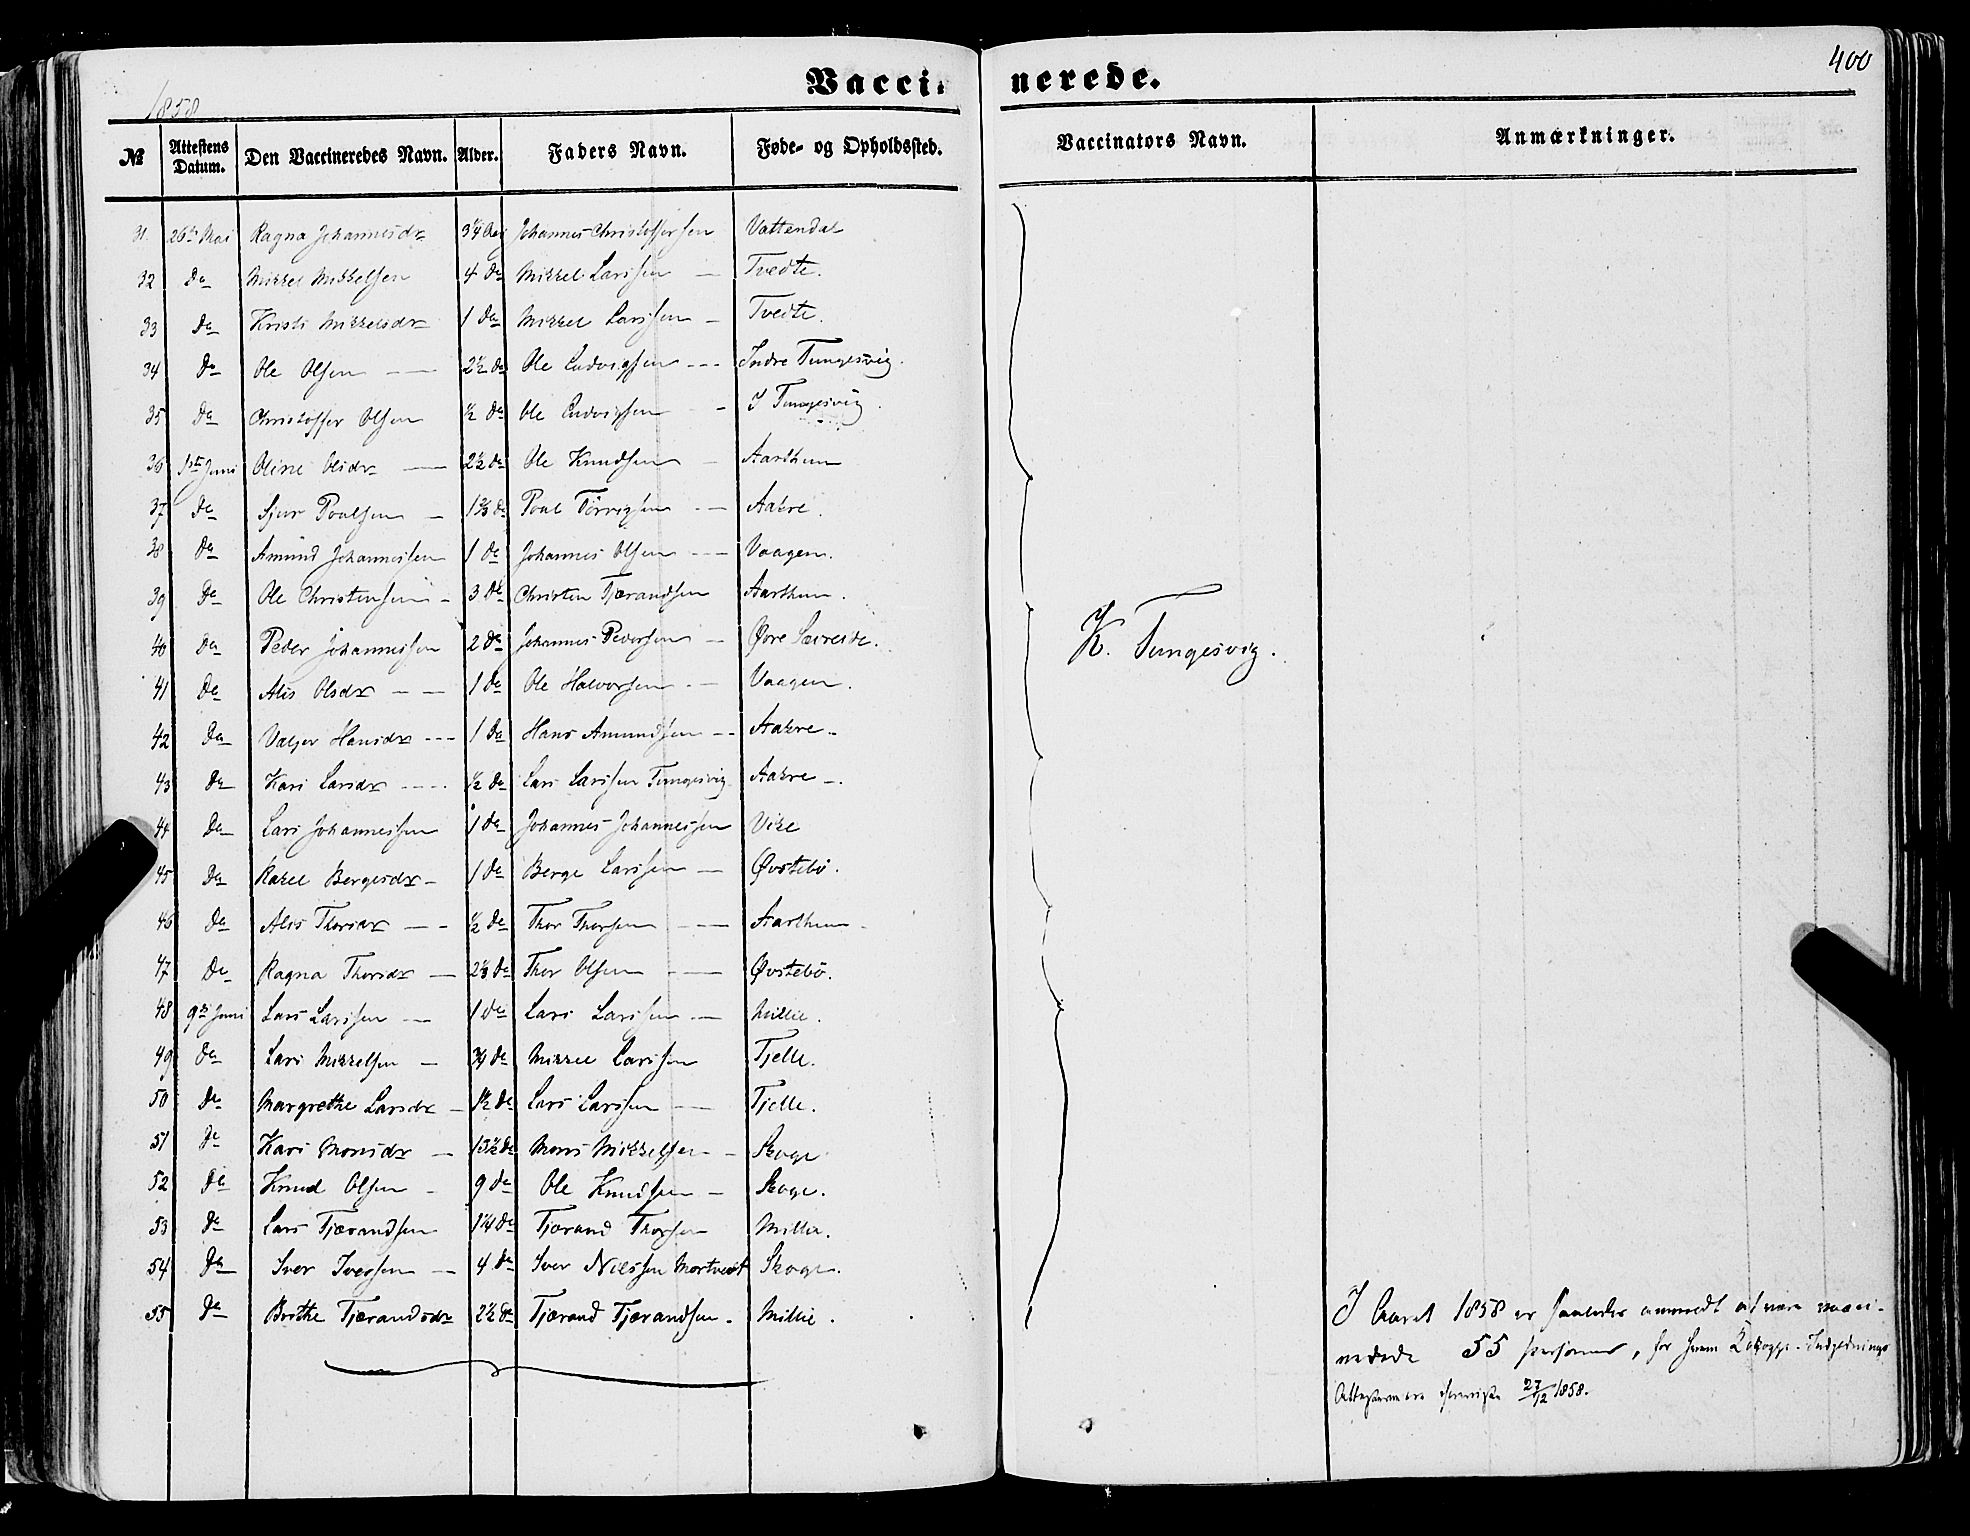 400
Vaccinerede.
1858
№ Attestens Datum. Den Vaccineredes Navn. Alder. Faders Navn. Føde- og Opholdssted. Vaccinators Navn. Anmærkninger.
31 26de Mai Ragna Johannesdr 3¼ Aar Johannes Christoffersen Vattendal
32 Do Mikkel Mikkelsen 4 Do Mikkel Larssen — Tvedte.
33 Do Kristi Mikkelsdr 1 Do Mikkel Larssen — Tvedte.
34 Do Ole Olsen — 2½ Do Ole Ludvigsen --- Indre Tungesvig.
35 Do Christoffer Olsen ½ Do Ole Ludvigsen - I Tungesvig.
36 1ste Juni Oline Olsdr — 2½ Do Ole Knudsen — Aarthun
37 Do Sjur Poulsen — 1⅔ Do Poul Tørrigsen -- Aakre.
38 Do Amund Johannessen 1 Do Johannes Olsen --- Vaagen.
39 Do Ole Christensen - 3 Do Christen Tjærandsen Aarthun.
40 Do Peder Johannessen 2 Do Johannes Pedersen — Øvre
41 Do Alis Olsdr -- 1 Do Ole Halvorsen -- Vaagen.
K. Tungesvig.
42 Do Valger Hansdr --- 1 Do Hans Amundsen -- Aakre -
43 Do Kari Larsdr ---- ½ Do Lars Larssen Tungesvig Aakre -.
44 Do Lars Johannessen 1 Do Johannes Johannessen Vike
45 Do Kahel Bergesdr - 1 Do Berge Larssen — Øvstebø.
46 Do Alis Thorsdr -- ½ Do Thor Thorsen -- Aarthun -
47 Do Ragna Thorsdr — 2⅓ Do Thor Olsen -- Øvstebø.
48 9de Juni Lars Larssen — 1 Do Lars Larssen — Millie.
49 Do Lars Mikkelsen — ¾ Do Mikkel Larssen Tjelle.
50 Do Margrethe Larsdr — 1½ Do Lars Larssen -- Tjelle.
51 Do Kari Monsdr — 13½ Do Mons Mikkelsen -- Skoge
52 Do Knud Olsen - 9 Do Ole Knudsen — Skoge.
53 Do Lars Tjærandsen 1¼ Do Tjærand Thorsen Millie.
54 Do Iver Iversen — 4 Do Iver Nielssen Mortvedt Skoge.
55 Do Brithe Tjærandsdr 2½ Do Tjærand Tjærandsen. Millie.
I Aaret 1858 er saaledes anmeldt at være vacci-
nerede 55 personer, for hvem Kokoppe-Indpodnings
27/12 1858.